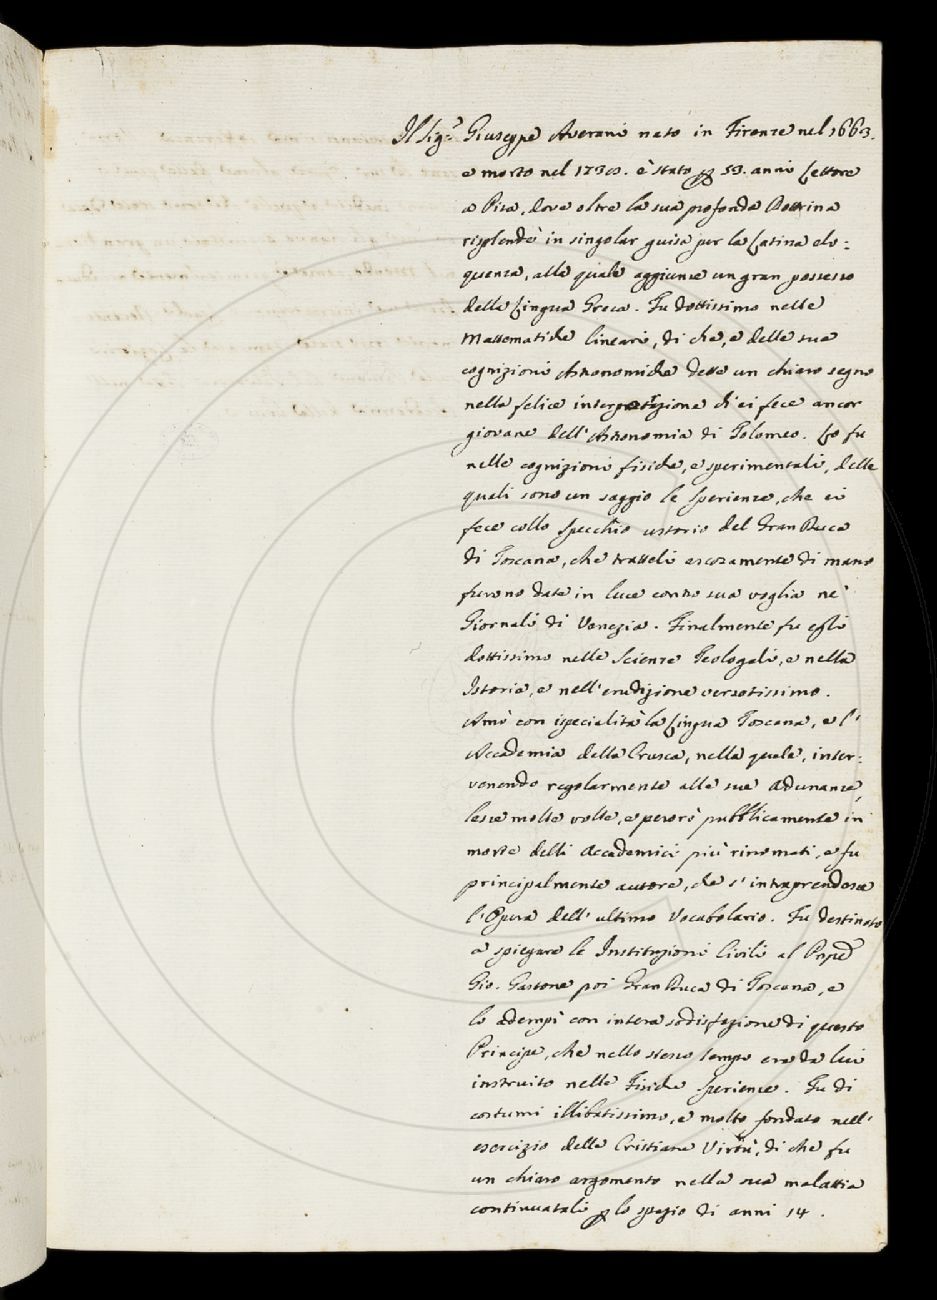 Il Sig.re Giuseppe Averani nato in Firenze nel 1663.
e morto nel 1738. è stato p 53. anni Lettore
a Pisa, dove oltre la sua profonda Dottrina
risplendè in singolar guisa per la Latina elo=
quenza, alla quale aggiunse un gran possesso
della Lingua Greca. Fu dottissimo nelle
Mattematiche lineari, di che, e delle sue
cognizioni Astronomiche dette un chiaro segno
nella felice interpretazione ch'ei fece ancor
giovane dell'Astronomia di Tolomeo. Lo fu
nelle cognizioni fisiche, e sperimentali, delle
quali sono un saggio le sperienze, che ei
fece collo specchio ustorio del Gran Duca
di Toscana, che tratteli ascozamente di mano
furono date in luce contro sua voglia ne'
Giornali di Venezia. Finalmente fu egli
dottissimo nelle Scienze Teologali, e nella
Istoria, e nell'erudizione versatissimo.
Amò con ispecialità la Lingua Toscana, e l'
Accademia della Crusca, nella quale, inter=
venendo regolarmente alle sue adunanze,
lesse molte volte, e perorò pubblicamente in
morte delli Accademici più rinomati, e fu
principalmente autore, che s'intraprendesse
l'Opera dell'ultimo Vocabolario. Fu destinato
a spiegare le Instituzioni Civili al
Gio. Gastone poi Gran Duca di Toscana, e
lo adempì con intera sodisfazione di questo
Principe, che nello stesso tempo era da lui
instruito nelle Fisiche sperienze. Fu di
costumi illibatissimo, e molto fondato nell'
esercizio delle Cristiane Virtù, di che fu
un chiaro argomento nella sua malattia
continuatali p lo spazio di anni 14.